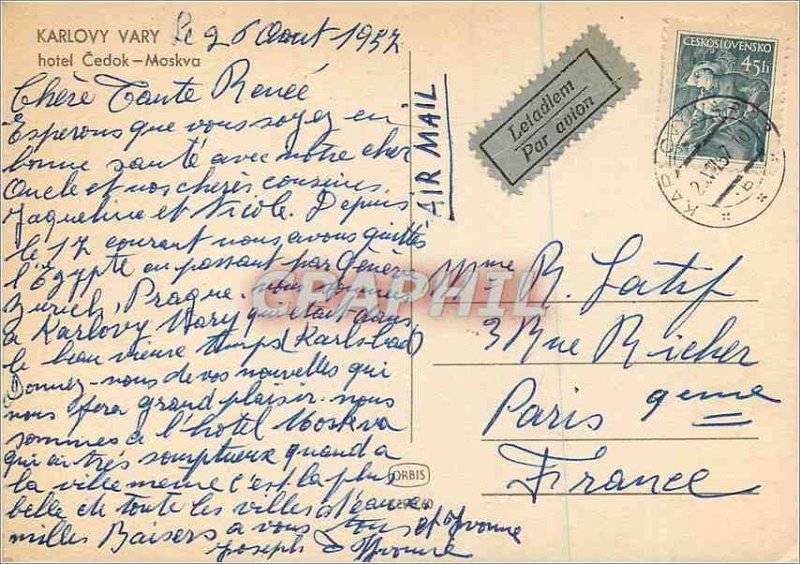 KARLOVY VARY
hotel Čedok – Moskva
Le 26 Aout 1957
Chère Tante Renée
Esperons que vous soyez en
bonne santé avec notre cher
Oncle et nos cheres cousines.
Jaqueline et Nicole. Depuis
le 17 courant nous avons quittés
l'Egypte en passant par Genève
Zurich, Prague. nous sommes
a Karlovy Vary qui était dans
le bon vieux temps Karlsbad
Donnez-nous de vos nouvelles qui
nous fera grand plaisir. nous
sommes a l'hotel Moskva
qui est très somptueux quand a
la ville meme c'est la plus
belle de toute les villes d'eaux
milles Baisers a vous tous
Joseph et Yvonne
AIR MAIL
Letadlem
Par avion
ČESKOSLOVENSKO
45h
KARLOVY VARY
CPAPHIL
Mme R. Latif
3 Rue Richer
Paris 9eme
France
ORBIS